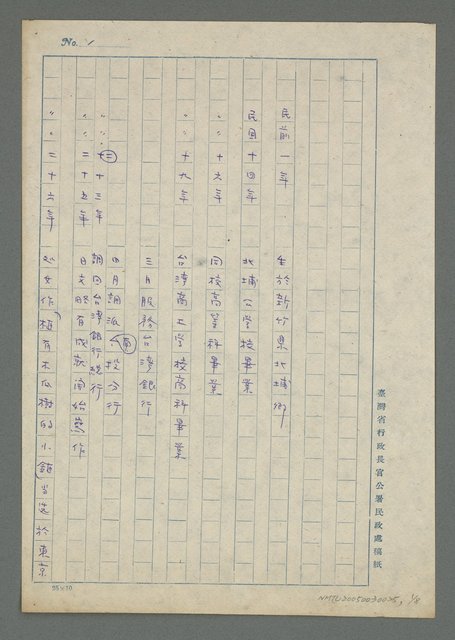 No. 1
民前一年 生於新竹県北埔鄉
民国十四年 北埔公学校畢業
〃〃十六年 同校高等科畢業
〃〃十九年 台湾商工学校商科畢業
三月服務台湾銀行
四月調派南投分行
〃〃二十三年 調回台湾銀行總行
〃〃二十五年 日文 有成就開始 作
〃〃二十六年 処女作「植有木瓜樹的小鎮」当選於東京
臺灣省行政長官公署民政處稿紙
25×10
NMTL20050030025, 1/8